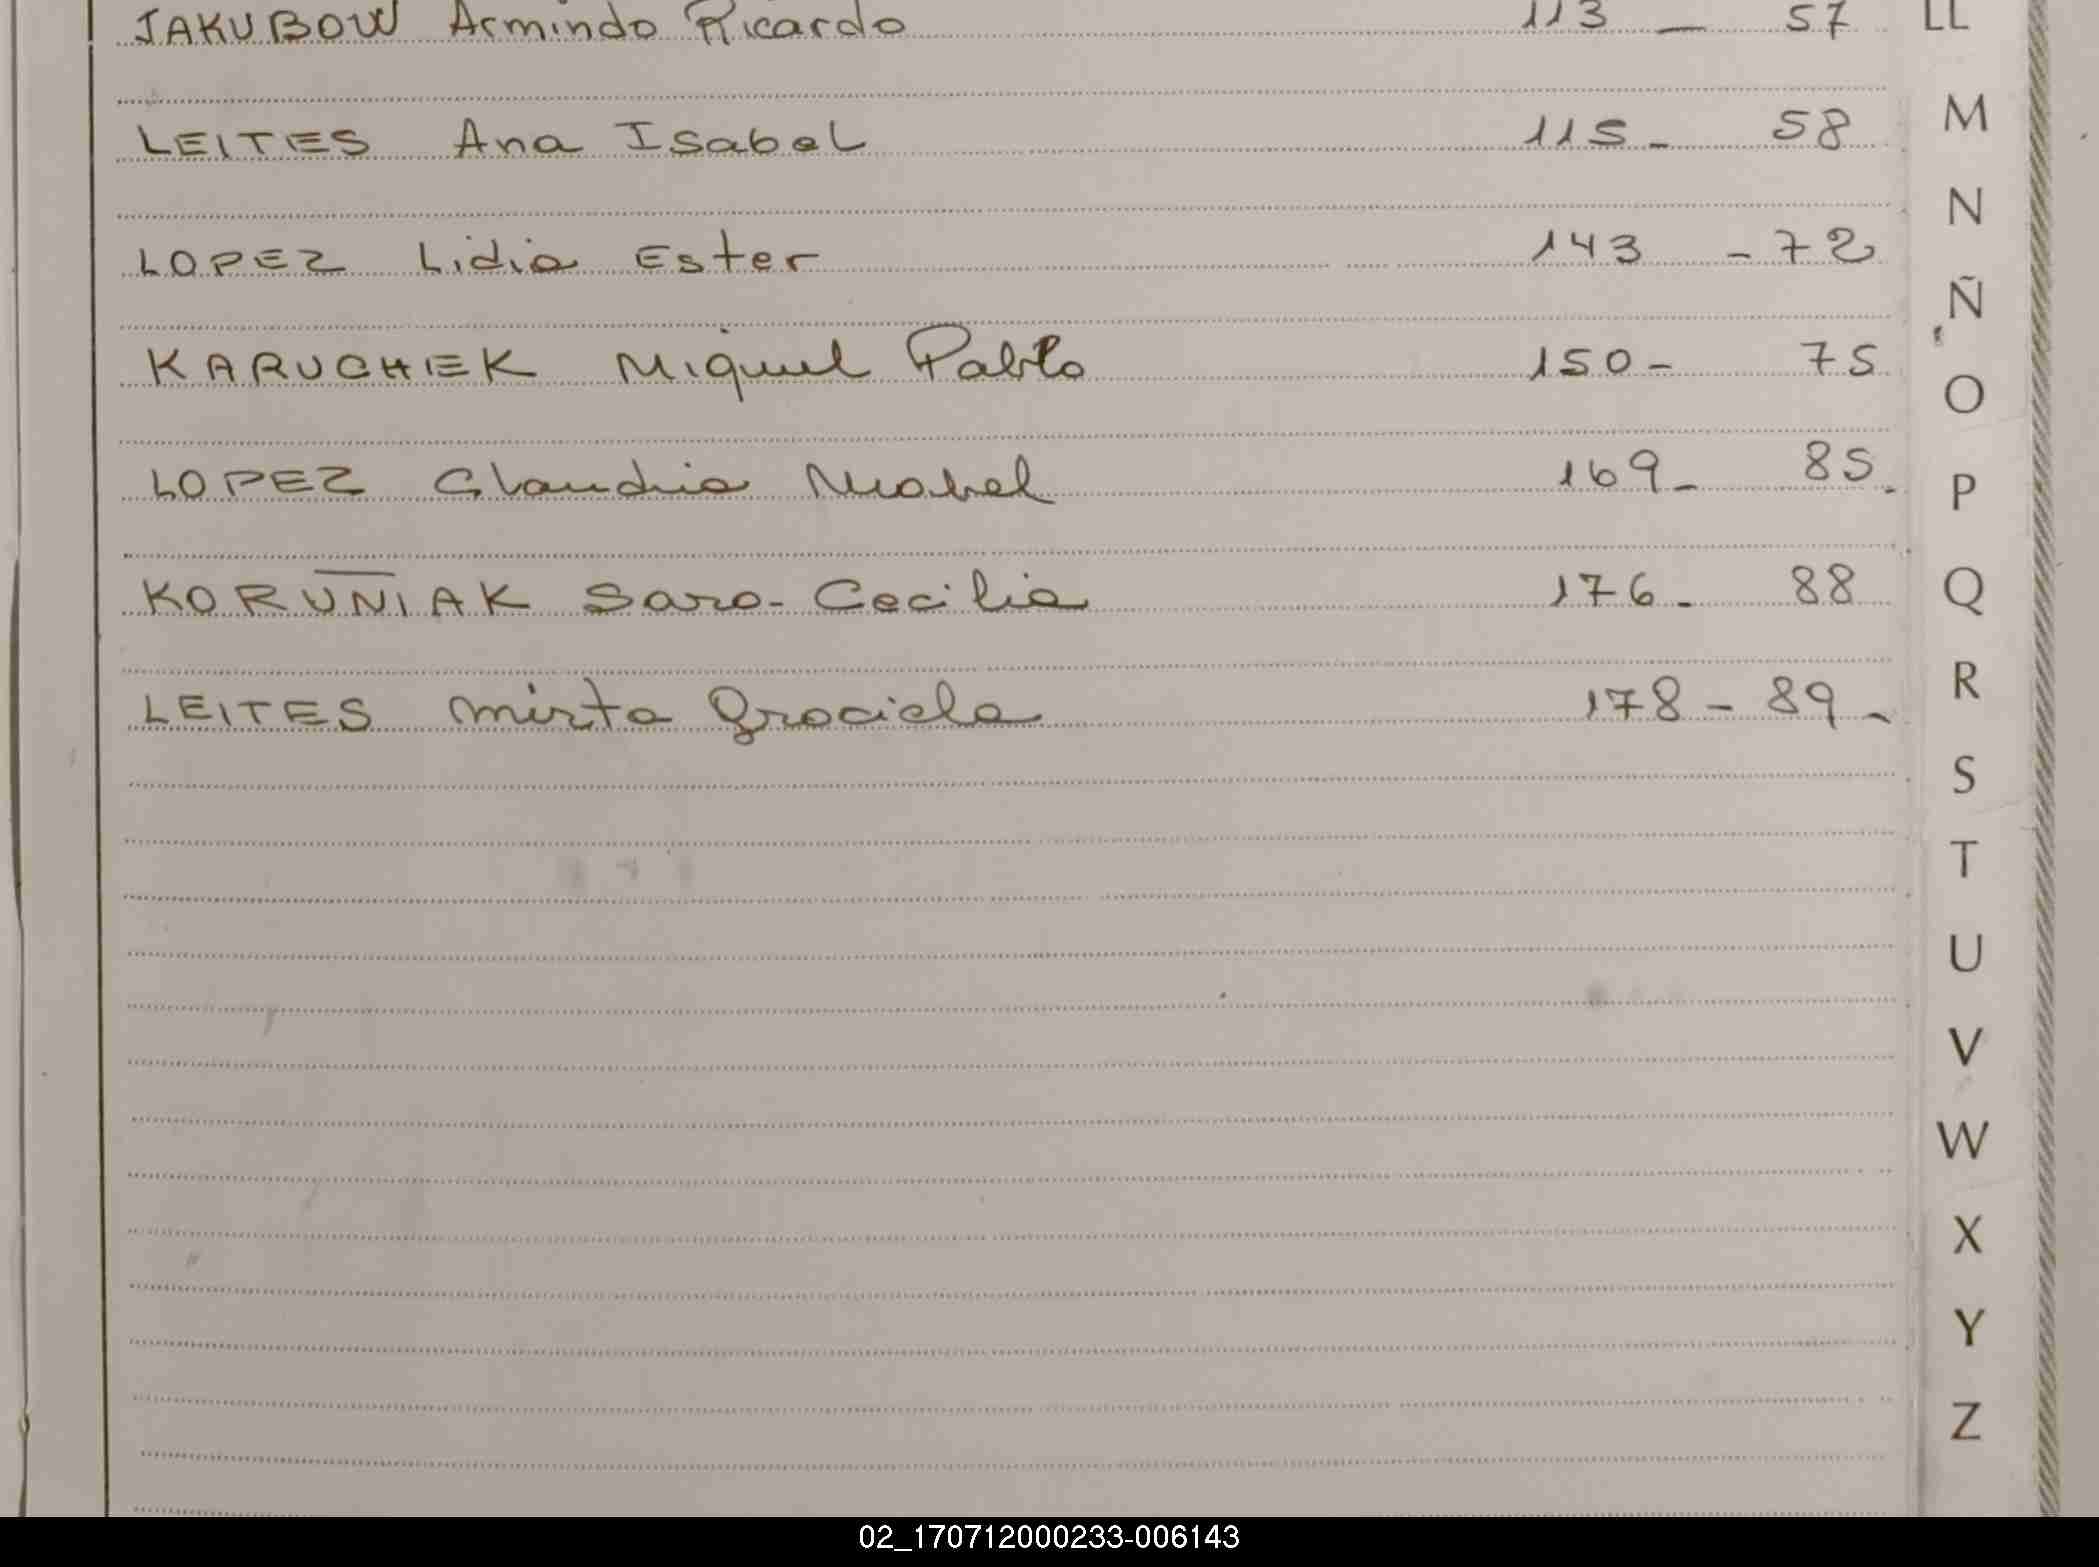 JAKUBOW Armindo Ricardo 113 — 57 LL
LEITES Ana Isabel 115 - 58
M
N
LOPEZ Lidia Ester 143 - 72
Ñ
KARUCHEK Miguel Pablo 150 - 75
O
LOPEZ Claudia Mabel 169 - 85.
P
KORUÑIAK Sara - Cecilia 176 - 88
Q
LEITES Mirta Graciela 178 - 89 -
R
S
T
U
V
W
X
Y
Z
02_170712000233-006143